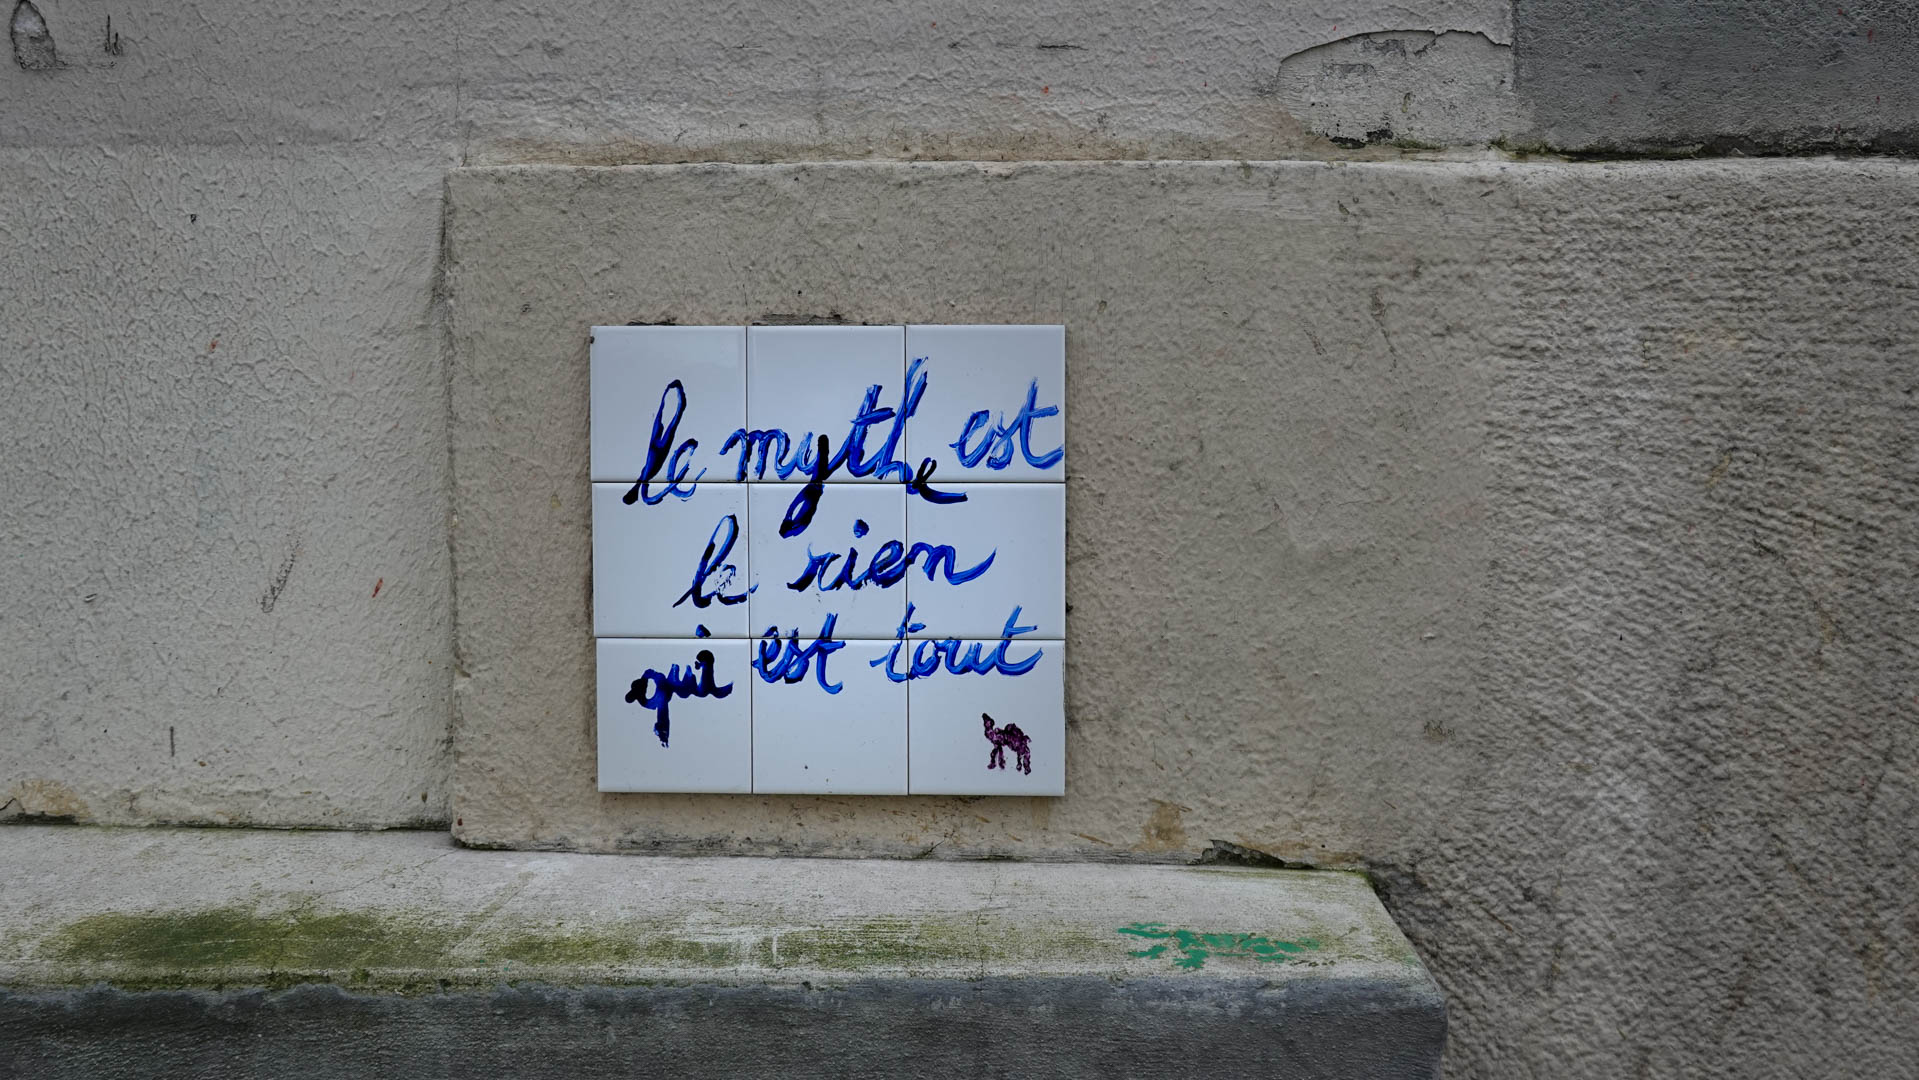 le mythe est
le rien
qui est tout